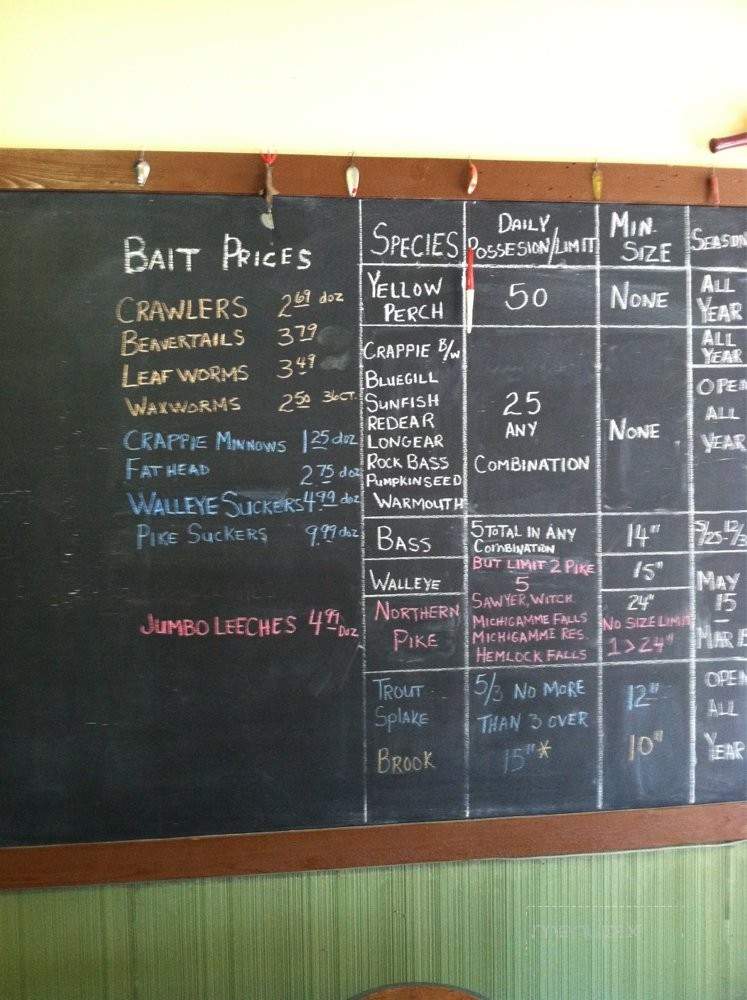 BAIT PRICES
CRAWLERS 2.69 doz
BEAVERTAILS 3.79
LEAF WORMS 3.49
WAXWORMS 2.50 36CT.
CRAPPIE MINNOWS 1.25 doz
FAT HEAD 2.75 doz
WALLEYE SUCKERS 4.99 doz
PIKE SUCKERS 9.99 doz
JUMBO LEECHES 4.99 Doz
SPECIES
DAILY
POSSESION/LIMIT
MIN.
SIZE
SEASON
YELLOW
PERCH
50
NONE
ALL
YEAR
CRAPPIE B/W
BLUEGILL
SUNFISH
REDEAR
LONGEAR
ROCK BASS
PUMPKINSEED
WARMOUTH
25
ANY
COMBINATION
NONE
ALL
YEAR
OPEN
ALL
YEAR
BASS
5 TOTAL IN ANY
COMBINATION
14"
5/25-12/3
WALLEYE
BUT LIMIT 2 PIKE
5
15"
MAY
15
-
MAR
NORTHERN
PIKE
SAWYER, WITCH
MICHIGAMME FALLS
MICHIGAMME RES.
HEMLOCK FALLS
24"
NO SIZE LIMIT
1>24"
TROUT
SPLAKE
BROOK
5/3 NO MORE
THAN 3 OVER
15"*
12"
10"
OPEN
ALL
YEAR